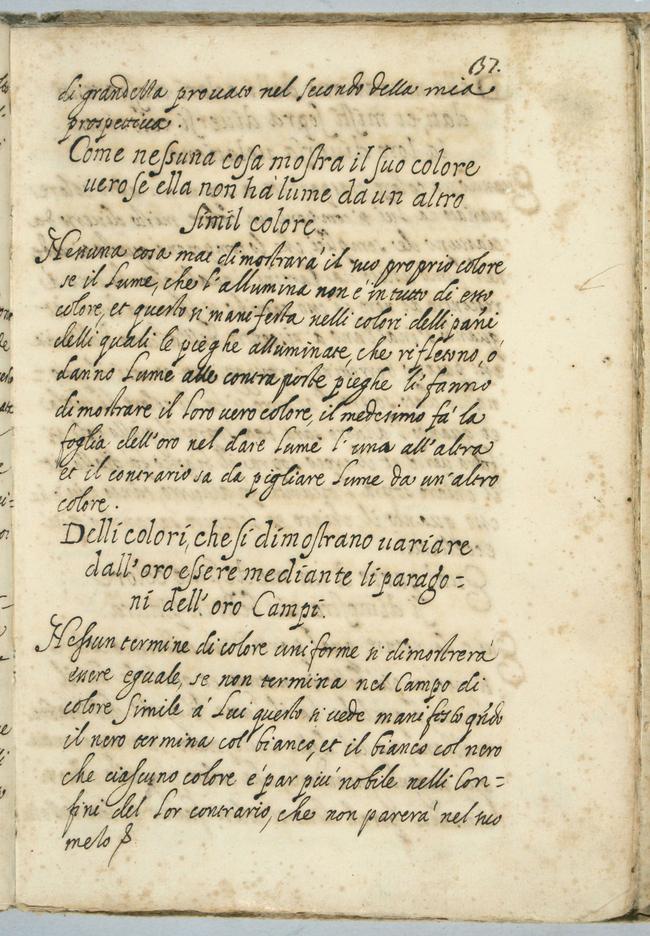 137.
di grandezza prouato nel secondo della mia
prospettiua.
Come nessuna cosa mostra il suo colore
uero se ella non hà lume da un altro
simil colore.
Nessuna cosa mai dimostrarà il suo proprio colore
se il Lume, che l'allumina non é in tutto di esso
colore, et questo si manifesta nelli colori delli pañi
delli quali le pieghe alluminate, che rifletono, ó
danno Lume alle contraposte pieghe li fanno
dimostrare il Loro uero colore, il medesimo fà la
foglia dell'oro nel dare Lume l'una all'altra
et il contrario sa da pigliare Lume da un'altro
colore.
Delli colori, che si dimostrano uariare
dall'oro essere mediante li parago=
ni dell'oro Campi.
Nessun termine di colore uniforme si dimostrerà
essere eguale, se non termina nel Campo di
colore simile á Lui questo si uede manifesto qñdo
il nero termina col bianco, et il bianco col nero
che ciascuno colore é par più nobile nelli Con=
fini del Lor contrario, che non parerà nel suo
mezo